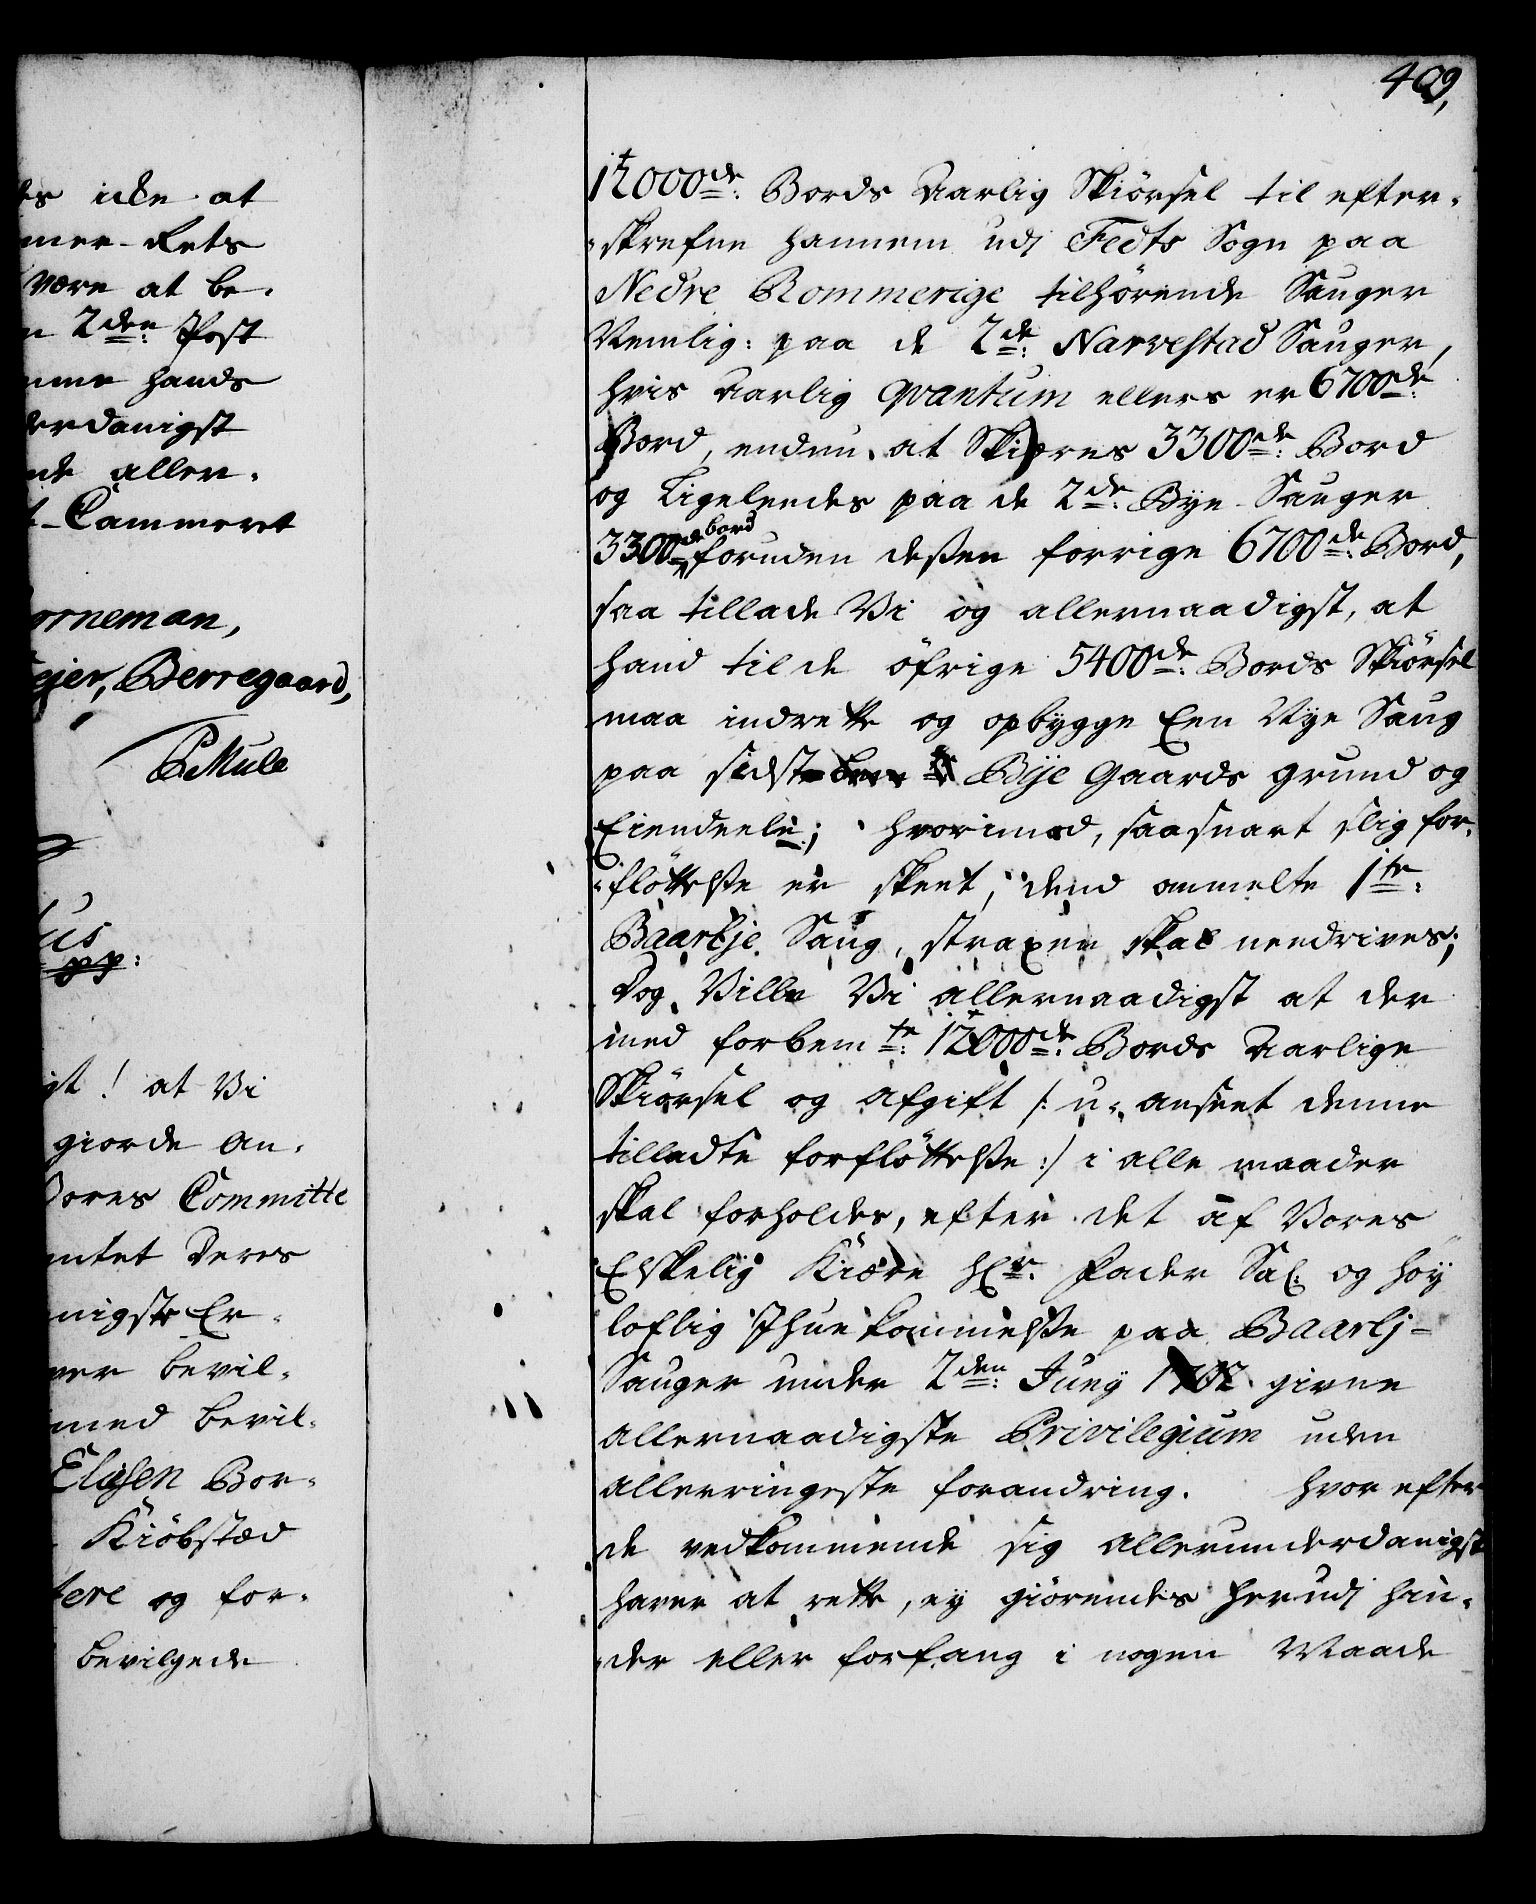 409,
es icke at
mer-Rets
være at be-
n 2den Post
mme hands
derdanigst
nde aller-
t-Cammeret
orneman,
ejer, Berregaard,
PMule
us
pp:
gt! at Vi
giorde an-
Vores Committe
ntet Deres
nigste Er-
ver bevil-
med bevil-
Elisen Bor-
Kiöbstæd
tere og for-
bevilgede
12000de: Bords Aarlig Skiörsel til efter-
-skrefne hannem udj Fedts Sogn paa
Nedre Rommerige tilhörende Sauger
Nemlig: paa de 2de: Narvestad Sauger,
hvis Aarlig qvantum ellers er 6700de:
Bord, endnu at Skiæres 3300de: Bord
og Ligeleedes paa de 2de: Bye-Sauger
3300de bord foruden deßen forrige 6700de: Bord,
saa tillade Vi og allernaadigst, at
hand til de öfrige 5400de: Bords Skiörsel
maa indrette og opbygge Een Nye Saug
paa sidst Bye Gaards grund og
Eiendeele; hvorimod, saasnart slig for-
-flöttelse er skeet, dend ommelte 1te:
Baarlje Saug, straxen skal needrives;
Dog Ville Vi allernaadigst at der
med forbemte: 12000de: Bords Aarlige
Skiörsel og afgift /: u-anseet denne
tilladte forflöttelse :/ i alle maader
skal forholdes, efter det af Vores
Elskelig Kiære Hr: Fader Sal: og höy
loflig Ihuekommelse paa Baarlj-
Sauger under 2den: Junij 1702 givne
allernaadigste Privilegium uden
allerringeste forandring. Hvorefter
de vedkommende sig allerunderdanigst
haver at rette, ey giörendes herudj hin-
-der eller forfang i nogen Maade